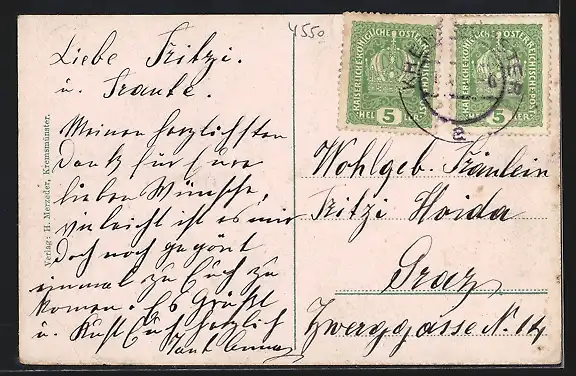 4550
Liebe Fritzi.
u. Traute.
Meinen herzlichsten
Dank für Eure
lieben Wünsche,
vielleicht ist es mir
doch noch gegönt
einmal zu Euch zu
komen. Es Grüßt
u. Küßt Euch herzlich
Tant Anna
Verlag: H. Merzeder, Kremsmünster.
KAISERLICHE KÖNIGLICHE ÖSTERREICHISCHE POST
HEL 5 LER
KAISERLICHE KÖNIGLICHE ÖSTERREICHISCHE POST
HEL 5 LER
Wohlgeb. Fräulein
Fritzi Hoida
Graz
Zwerggasse N. 14